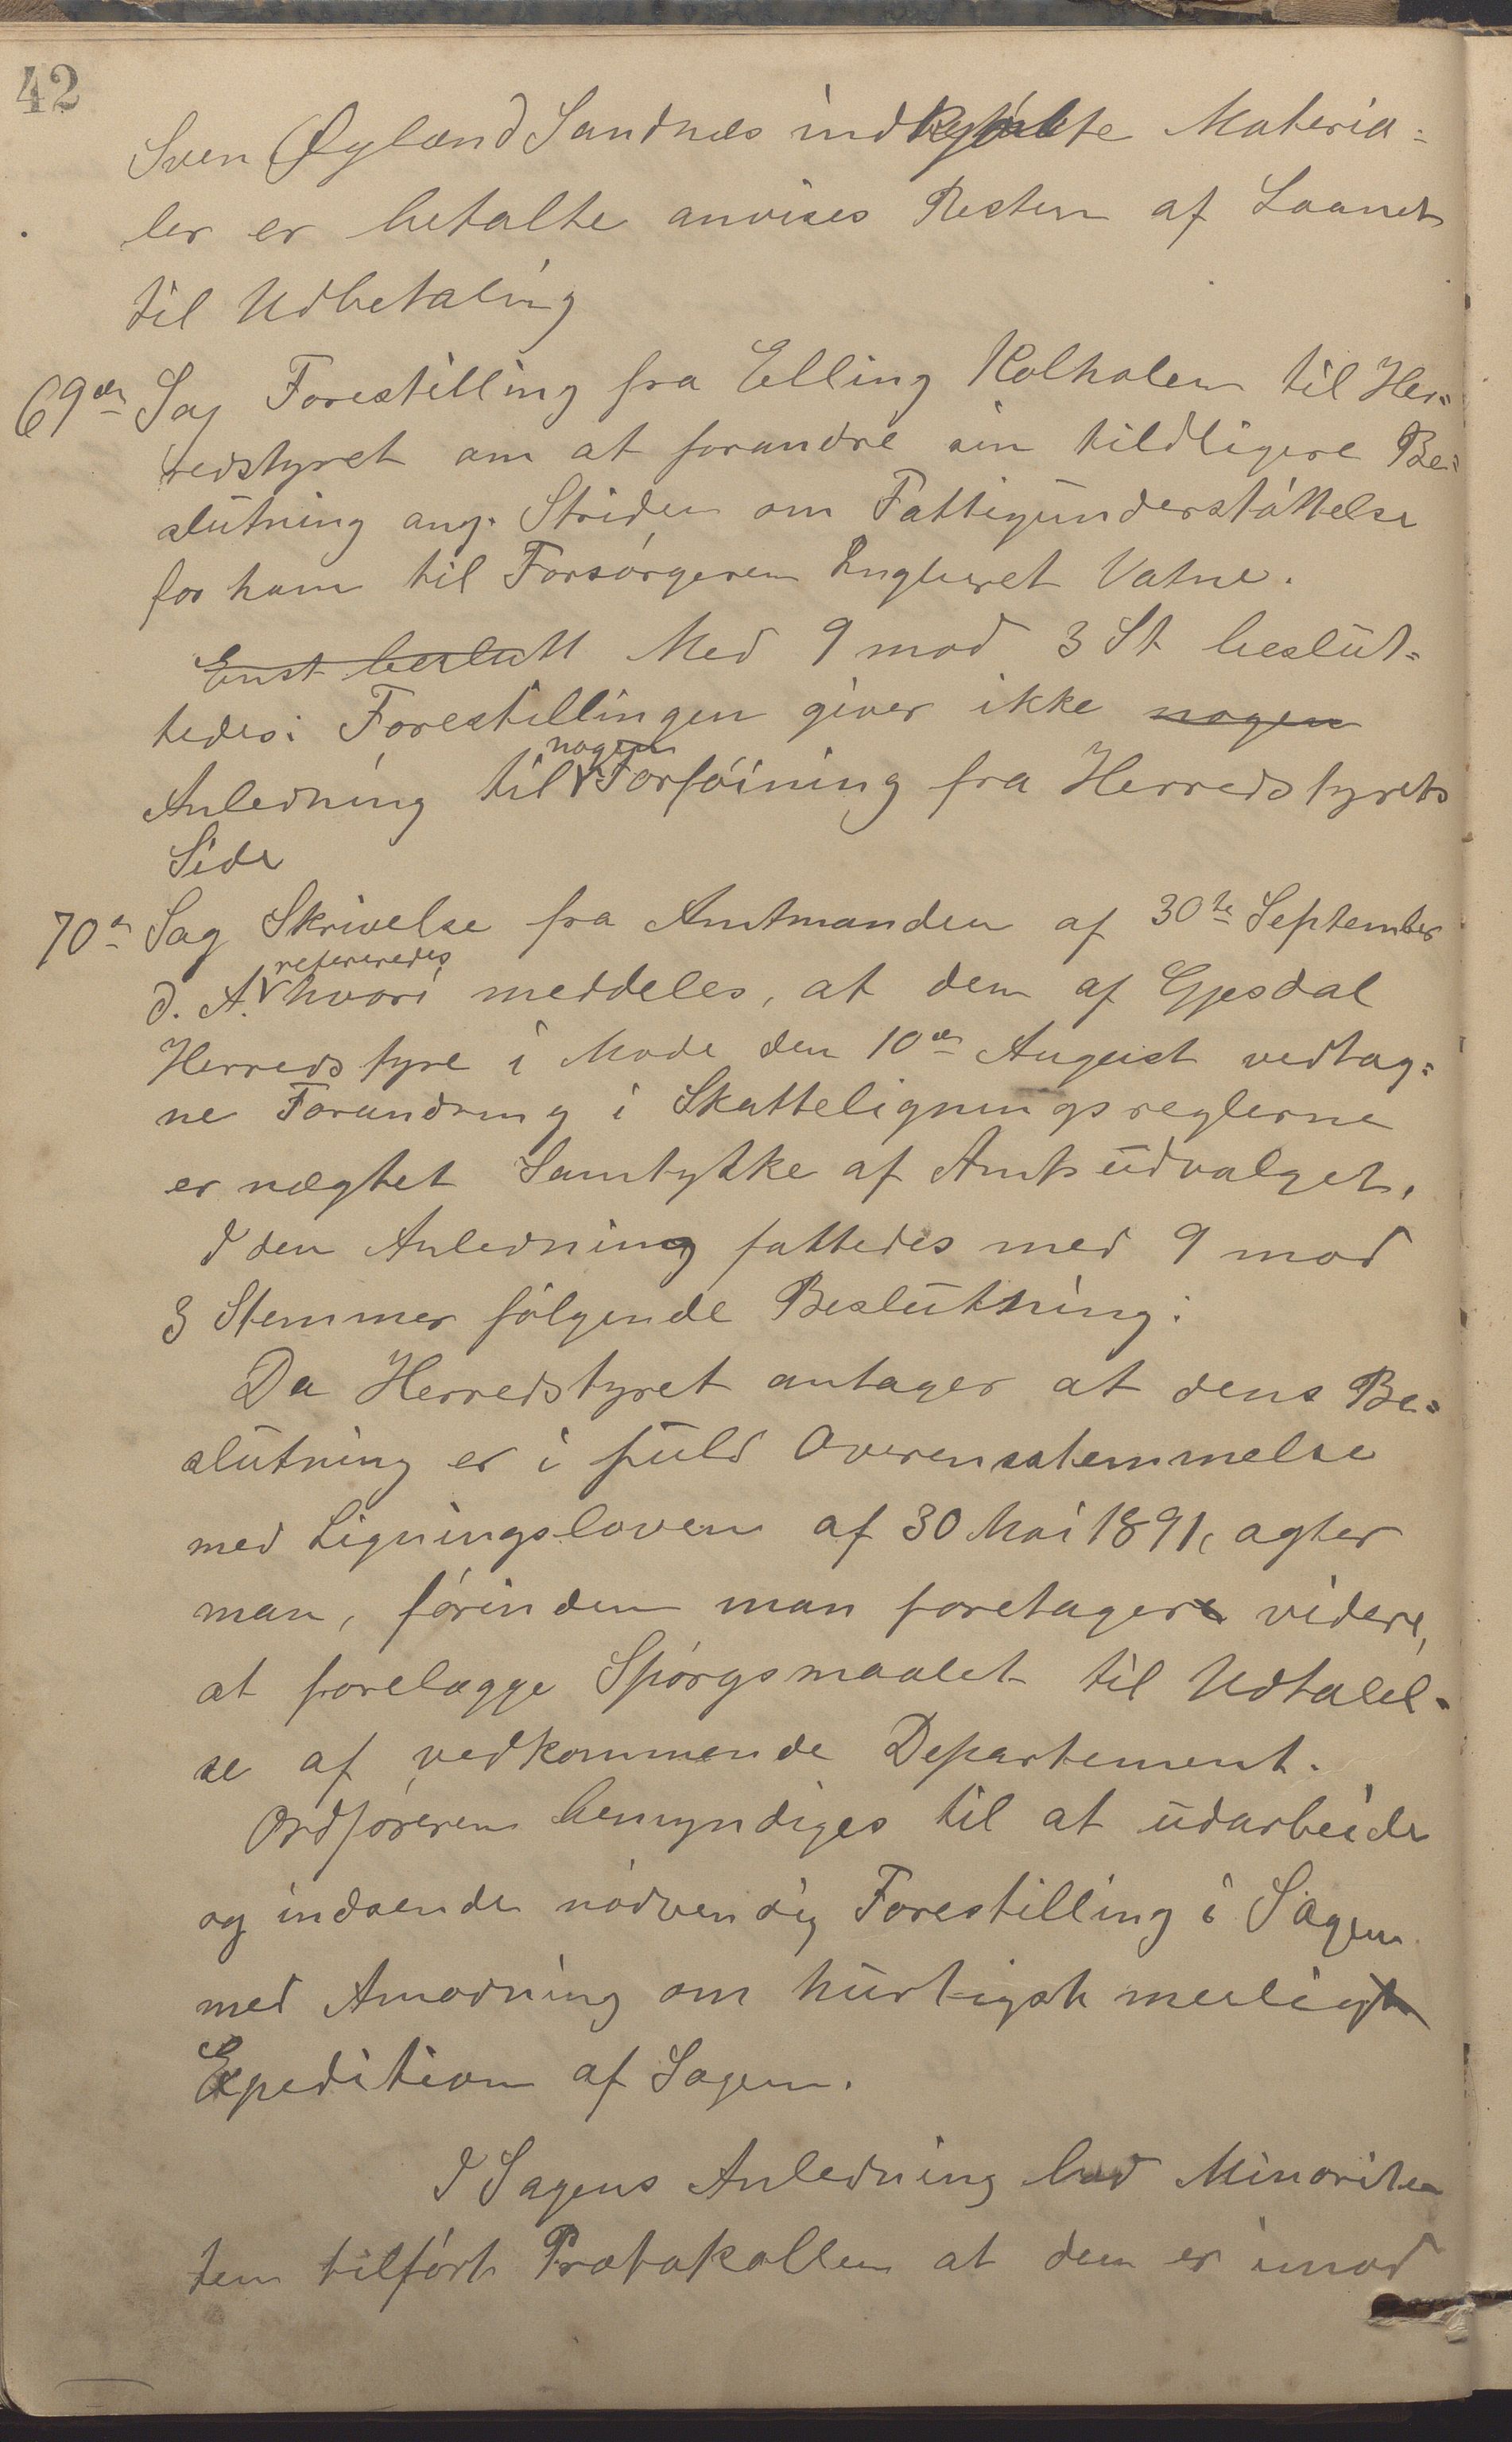 42
Sven Øgland Sandnes indkjøbte Materia-
ler er betalte anvises Resten af Laanet
til Udbetaling
69de Sag Forestilling fra Elling Kolholen til Her-
redstyret om at forandre sin tildligere Be-
slutning ang. Striden om Fattigunderstøttelse
for ham til Forsørgeren Engbret Vatne.
Enst beslutt Med 9 mod 3 St beslut-
tedes: Forestillingen giver ikke nogen
nogen
Anledning til Forføining fra Herredstyrets
Side
70de Sag Skrivelse fra Amtmanden af 30te September
refereredes
d. A. hvori meddeles, at den af Gjesdal
Herredstyre i Møde den 10de August vedtag-
ne Forandring i Skatteligningsreglerne
er nægtet Samtykke af Amtsudvalget.
I den Anledning fattedes med 9 mod
3 Stemmer følgende Beslutning:
Da Herredstyret antager at dens Be-
slutning er i fuld Overensstemmelse
med Ligningsloven af 30 Mai 1891, agter
man, førinden man foretager videre,
at forelægge Spørgsmaalet til Udtalel-
se af vedkommende Departement.
Ordføreren bemyndiges til at udarbeide
og indsende nødvendig Forestilling i Sagen
med Anmodning om hurtigst muligt
Expedition af Sagen.
I Sagens Anledning bad Minorite
ten tilført Protokollen at den er imod